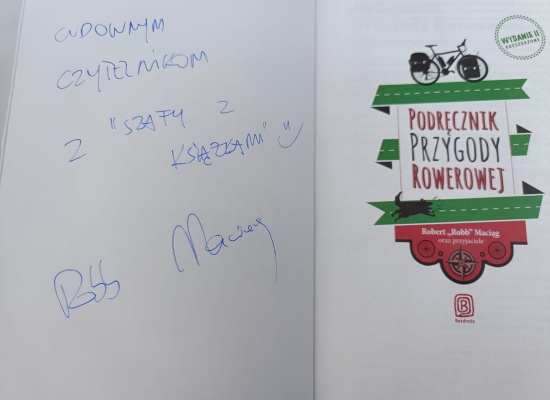 CUDOWNYM
CZYTELNIKOM
Z "SZAFY Z
KSIĄŻKAMI"
Robb Maciąg
WYDANIE II
ROZSZERZONE
PODRĘCZNIK
PRZYGODY
ROWEROWEJ
Robert „Robb” Maciąg
oraz przyjaciele
Bezdroża